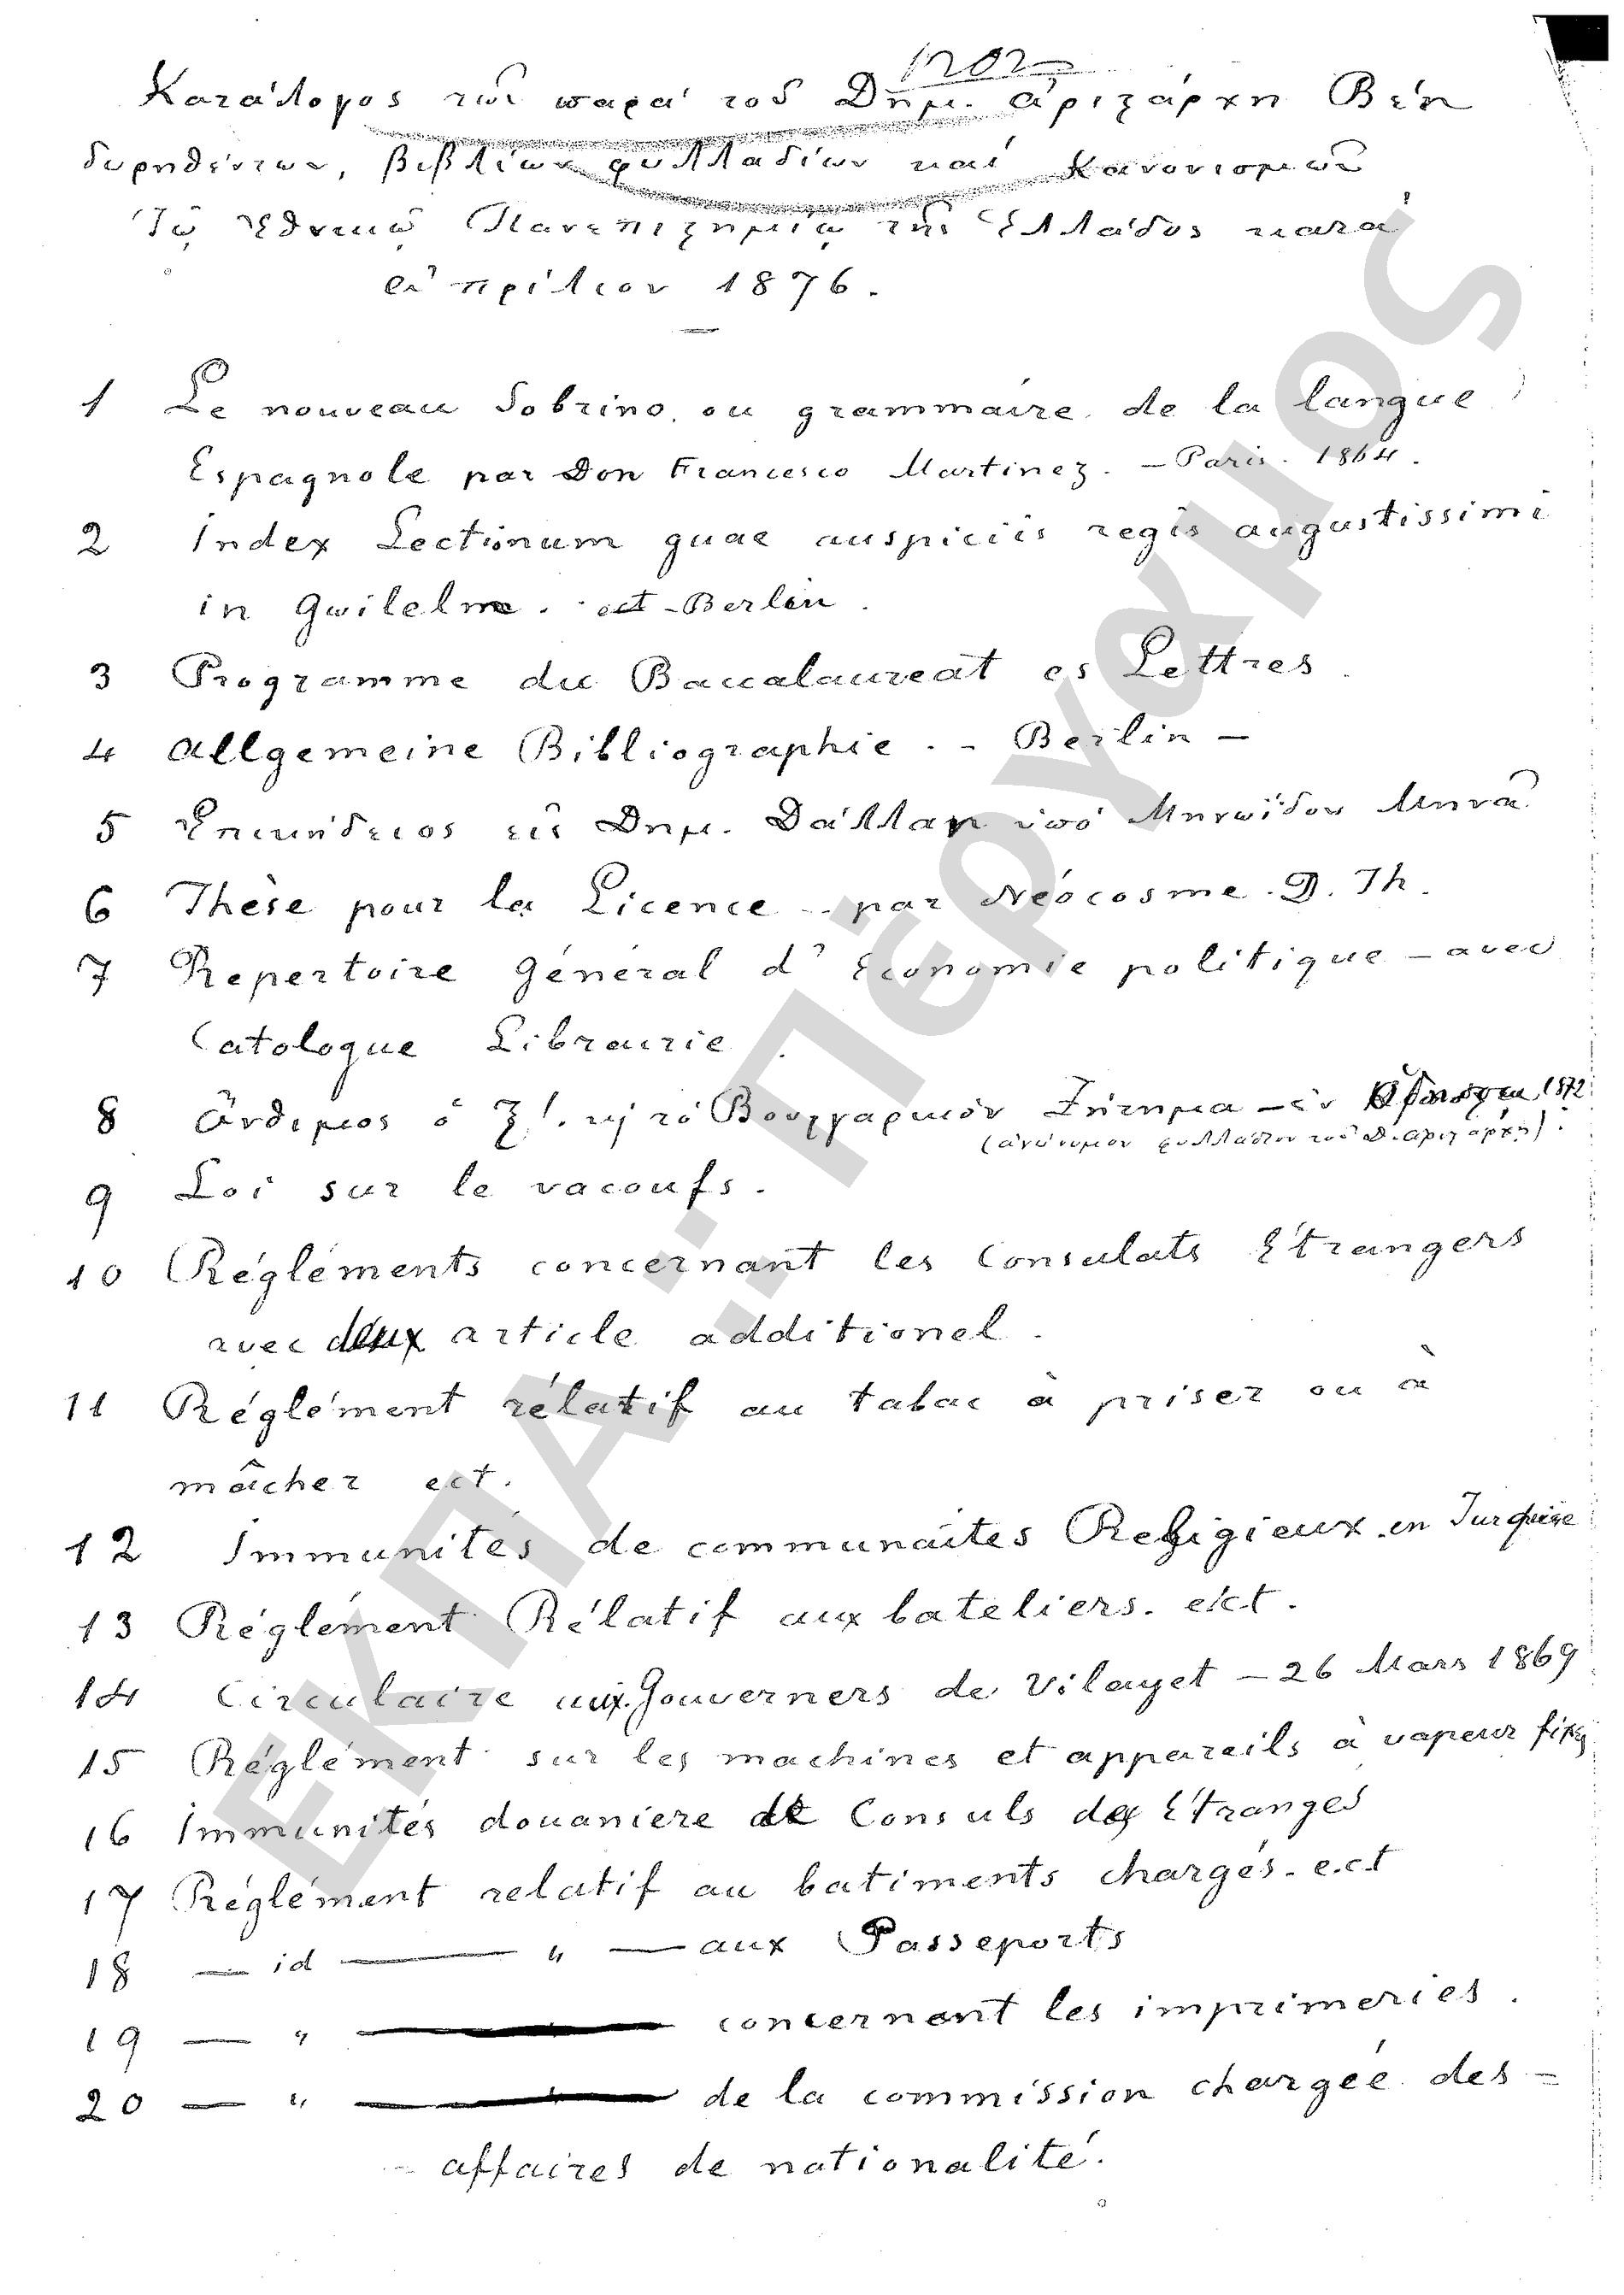 1202
Κατάλογος τῶν παρὰ τοῦ Δημ. Ἀριστάρχη Βέη
δωρηθέντων, βιβλίων φυλλαδίων καὶ Κανονισμῶν
Τῷ Ἐθνικῷ Πανεπιστημίῳ τῆς Ἑλλάδος κατὰ
Ἀπρίλιον 1876.
1 Le nouveau Sobrino, ou grammaire de la langue
Espagnole par Don Francesco Martinez. – Paris. 1864.
2 Index Lectionum quae auspiciis regis augustissimi
in Gwilelm. ect - Berlin.
3 Programme du Baccalaureat es Lettres
4 Allgemeine Bibliographie. - Berlin -
5 Ἐπικήδειος εἰς Δημ. Δάλλαρ ὑπό Μηνωΐδου Μηνᾶ
6 Thèse pour la Licence - par Néocosme. D. Th.
7 Repertoire Général d' Economie politique - avec
Catologue Librairie
8 Ἄνθιμος ὁ ΣΤ'. κ τό Βουλγαρικόν Ζήτημα - ἐν 1872
(ἀνώνυμον φυλλάδιον τοῦ Δ. Ἀριστάρχη).
9 Loi sur le vacoufs.
10 Réglements concernant les Consulats Etrangers
avec deux article additionel.
11 Réglément rélatif au tabac à priser ou à
mâcher ect.
12 Immunités de communaites Religieux en Turquie
13 Réglément Rélatif aux bateliers. ect.
14 Circulaire aux Gouverners de Vilayet - 26 Mars 1869
15 Réglément sur les machines et appareils à vapeur fixes
16 Immunités douaniere de Consuls des Etranges
17 Réglément relatif au batiments chargés. e.c.t
18 — id — " — aux Passeports
19 — " — concernant les imprimeries.
20 — " — de la commission chargée des -
- affaires de nationalité.
ΕΚΠΑ.: Πέργαμος